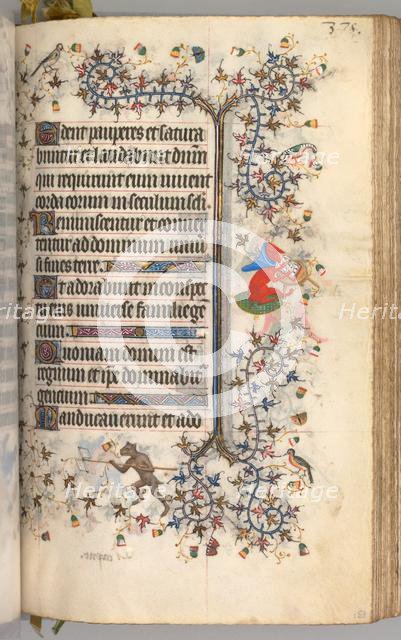 375.
Edent pauperes et satura
buntur et laudabunt dnm
qui requirunt eum vivent
corda eorum in seculum scli.
Reminiscentur et conver
tentur ad dominum univ
si fines terre.
Et adorabunt in conspec
tu eius universe familie gen
cium.
Quoniam domini est
regnum et ipse dominabit
gencium.
Manducaverunt et ado
Heritage
Heritage
Heritage
Heritage